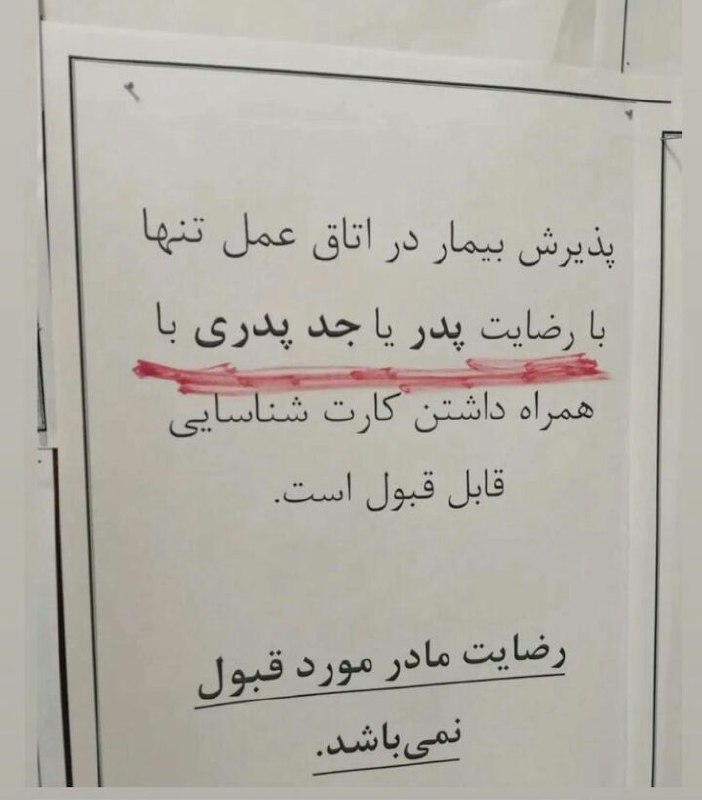 پذیرش بیمار در اتاق عمل تنها
با رضایت پدر یا جد پدری با
همراه داشتن کارت شناسایی
قابل قبول است.
رضایت مادر مورد قبول
نمی‌باشد.